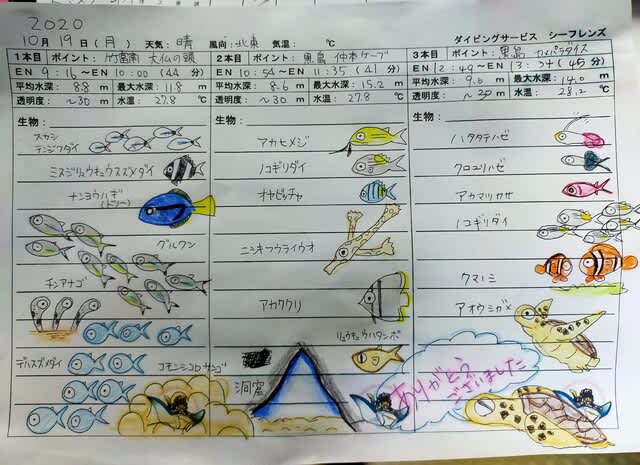 2020
10月19日(月) 天気:晴 風向:北東 気温: ℃ ダイビングサービス シーフレンズ
1本目 ポイント:竹富南 大仏の頭
EN 9:16~EN 10:00(44分)
平均水深: 8.8 m 最大水深: 11.8 m
透明度: ~30 m 水温: 27.8 ℃
生物:
スカシ
テンジクダイ
ミスジリュウキュウスズメダイ
ナンヨウハギ
(ドリー)
グルクン
チンアナゴ
デバスズメダイ
コモンシコロサンゴ
2本目 ポイント:黒島 仲本ケーブ
EN 10:54~EN 11:35(41分)
平均水深: 8.6 m 最大水深: 15.2 m
透明度: ~30 m 水温: 27.8 ℃
生物:
アカヒメジ
ノコギリダイ
オヤビッチャ
ニシキフウライウオ
アカククリ
リュウキュウハタンポ
洞窟
3本目 ポイント:黒島 カメパラダイス
EN 12:49~EN 13:34(45分)
平均水深: 9.6 m 最大水深: 14.0 m
透明度: ~30 m 水温: 28.2 ℃
生物:
ハタタテハゼ
クロユリハゼ
アカマツカサ
ノコギリダイ
クマノミ
アオウミガメ
ありがとう
ございました